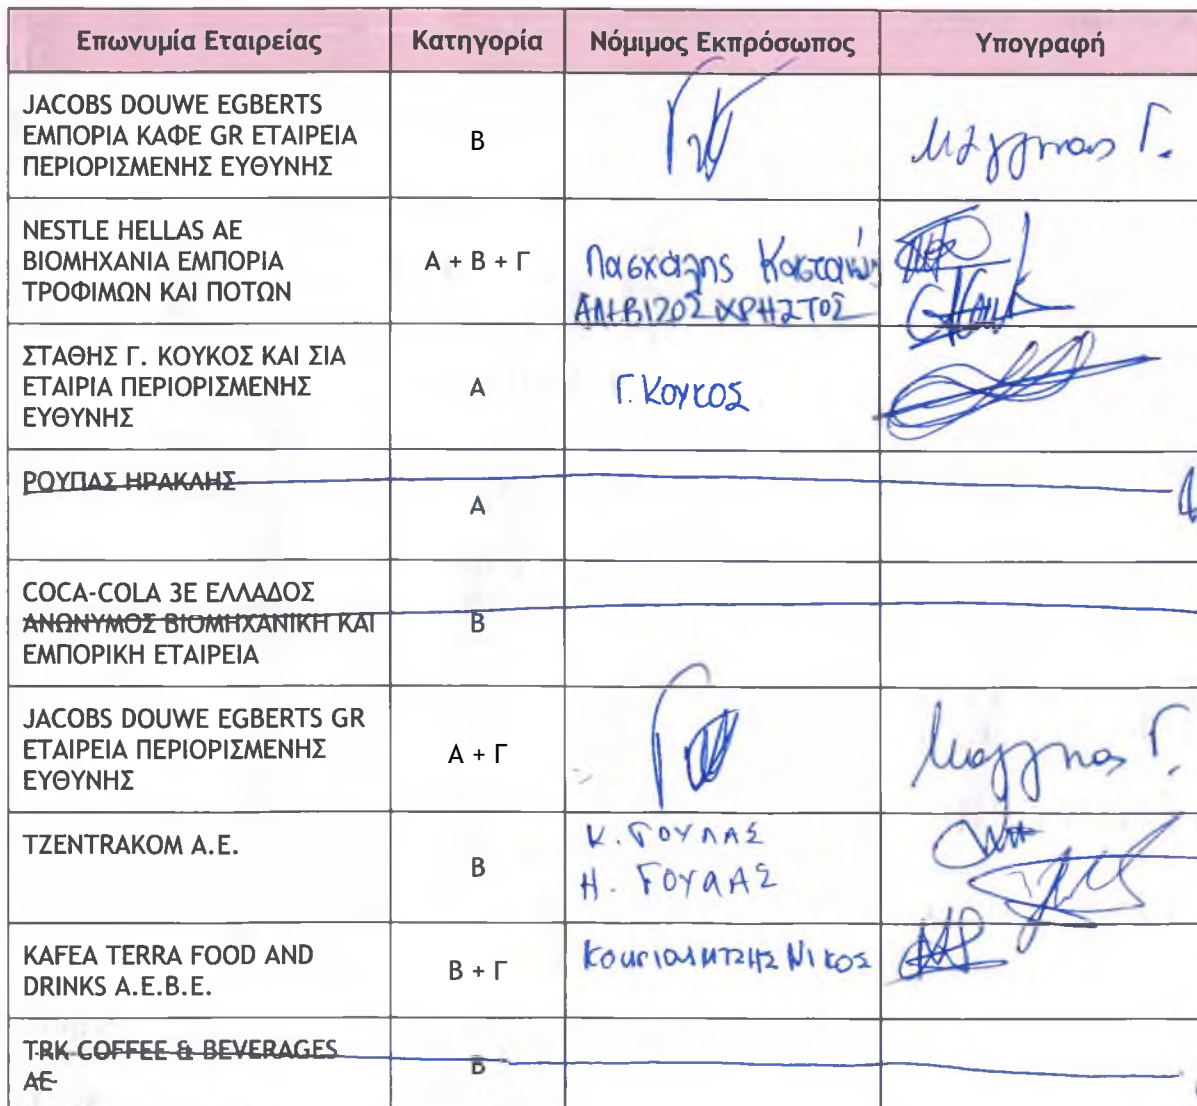 Επωνυμία Εταιρείας Κατηγορία Νόμιμος Εκπρόσωπος Υπογραφή
JACOBS DOUWE EGBERTS
ΕΜΠΟΡΙΑ ΚΑΦΕ GR ΕΤΑΙΡΕΙΑ
ΠΕΡΙΟΡΙΣΜΕΝΗΣ ΕΥΘΥΝΗΣ
Β
Γ.
NESTLE HELLAS ΑΕ
ΒΙΟΜΗΧΑΝΙΑ ΕΜΠΟΡΙΑ
ΤΡΟΦΙΜΩΝ ΚΑΙ ΠΟΤΩΝ
Α + Β + Γ
Πασχάλης
ΧΡΗΣΤΟΣ
ΣΤΑΘΗΣ Γ. ΚΟΥΚΟΣ ΚΑΙ ΣΙΑ
ΕΤΑΙΡΙΑ ΠΕΡΙΟΡΙΣΜΕΝΗΣ
ΕΥΘΥΝΗΣ
Α
Γ. ΚΟΥΚΟΣ
ΡΟΥΠΑΣ ΗΡΑΚΛΗΣ
Α
COCA-COLA 3Ε ΕΛΛΑΔΟΣ
ΑΝΩΝΥΜΟΣ ΒΙΟΜΗΧΑΝΙΚΗ ΚΑΙ
ΕΜΠΟΡΙΚΗ ΕΤΑΙΡΕΙΑ
Β
JACOBS DOUWE EGBERTS GR
ΕΤΑΙΡΕΙΑ ΠΕΡΙΟΡΙΣΜΕΝΗΣ
ΕΥΘΥΝΗΣ
Α + Γ
Γ.
TZENTRAKOM Α.Ε.
Β
Κ. ΓΟΥΛΑΣ
Η. ΓΟΥΛΑΣ
KAFEA TERRA FOOD AND
DRINKS Α.Ε.Β.Ε.
Β + Γ
ΝΙΚΟΣ
TRK COFFEE & BEVERAGES
ΑΕ
Β